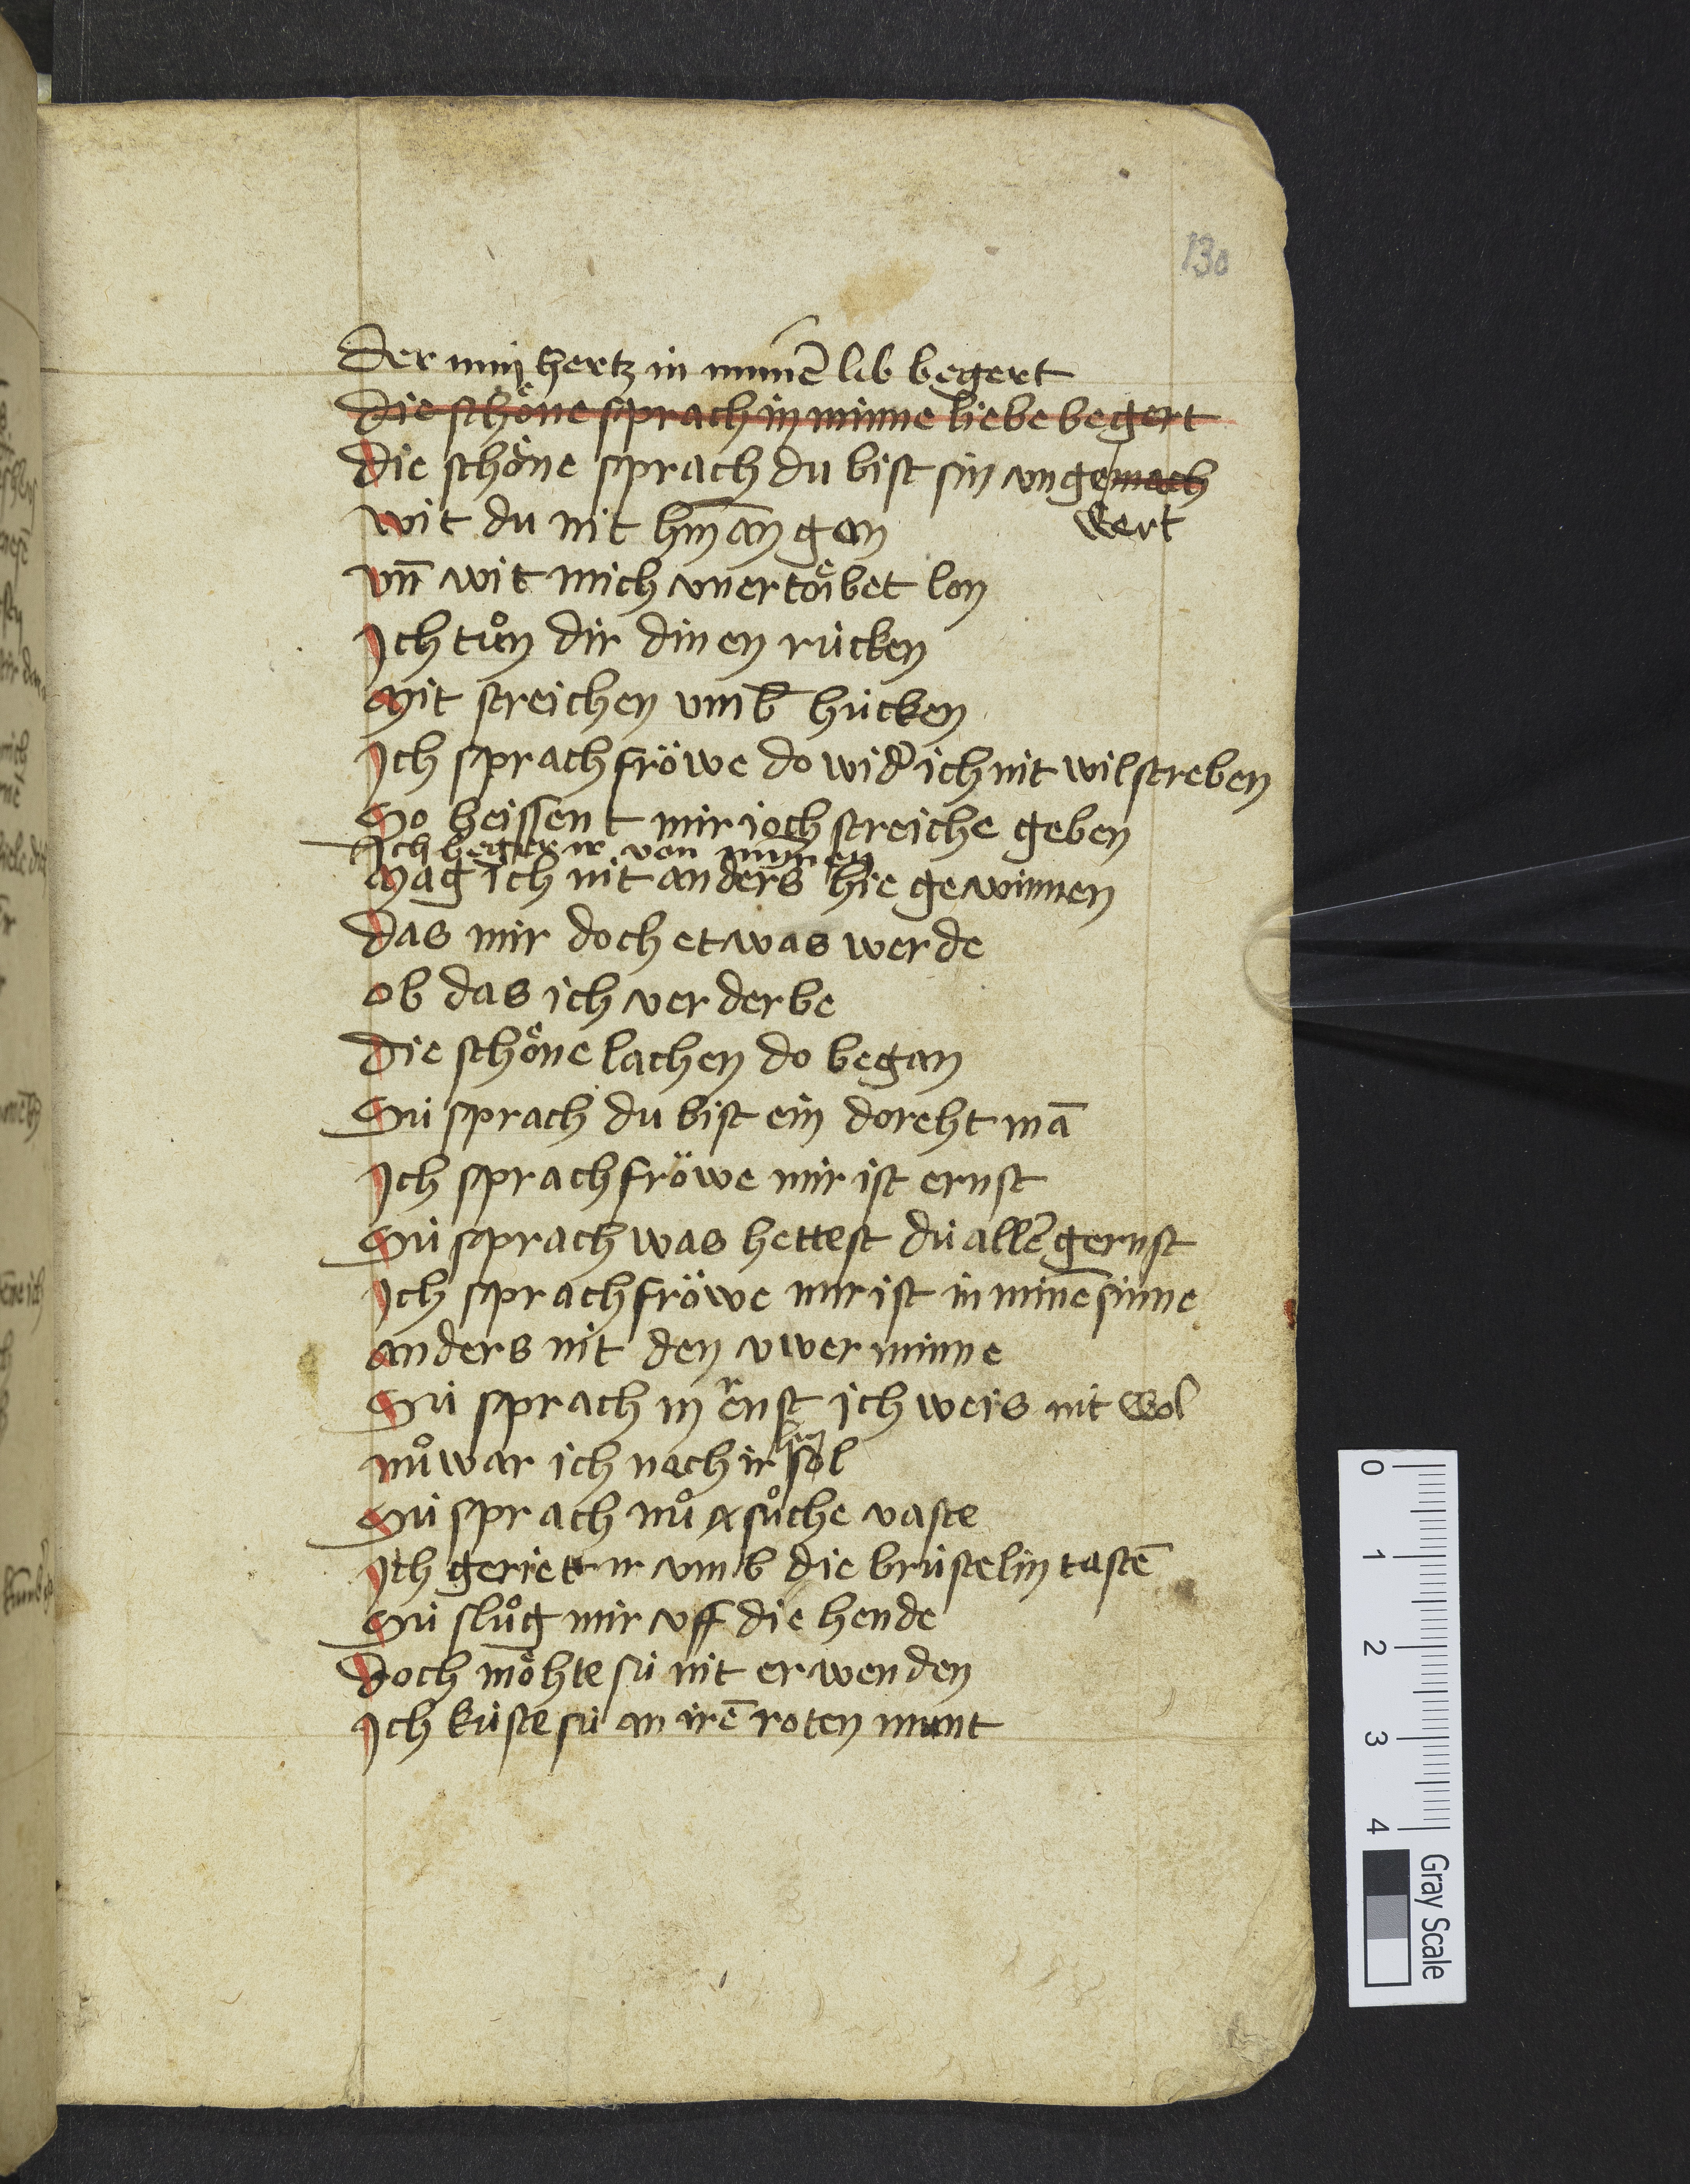 130
Der min hertz in minē lib begert
die schoͤne sprach in minne liebe begert
die schoͤne sprach du bist sin ungemach
wert
wit du nit hin̄ an gan
vn̄ wit mich unertoͤibet lon
Ich tuͦn dir dinen rücken
mit streichen umb hücken
Ich sprach fröwe do wid͛ ich nit wil streben
So heissent mir joch streiche geben
Ich beger ir von minnen
mag ich nit anders hie gewinnen
das mir doch etwas werde
ob das ich verderbe
die schoͤne lachen do began
Sü sprach du bist ein doreht mā
Ich sprach fröwe mir ist ernst
Sü sprach was hettest du all͛ gernst
Ich sprach fröwe mir ist in minē sinne
anders nit den uwer minne
Sü sprach in ernst ich weis nit wol
nuͦ war ich nach ir hin sol
Sü sprach nuͦ suͦche vaste
Ich geriet ir umb die brüstelin tastē
Sü sluͦg mir uff die hende
doch moͤhte sü nit erwenden
Ich küste sü an irē roten munt
0
1
2
3
4
Gray Scale